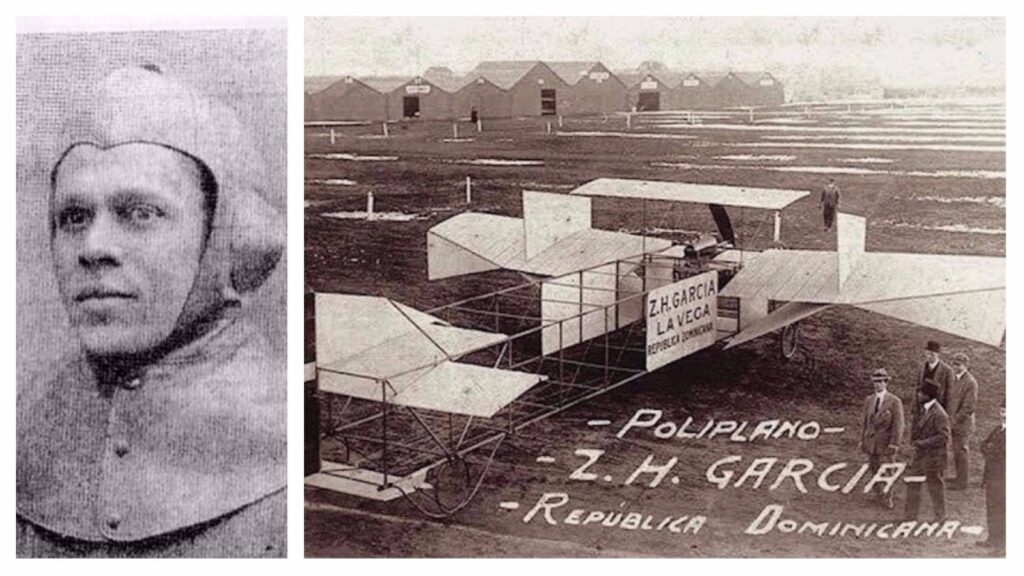 Z.H. GARCIA
LA VEGA
REPUBLICA DOMINICANA
- POLIPLANO -
- Z. H. GARCIA -
- REPÚBLICA DOMINICANA -